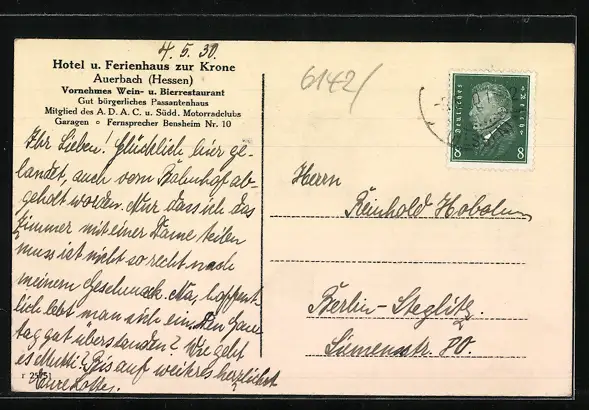 4.5.30.
Hotel u. Ferienhaus zur Krone
Auerbach (Hessen)
Vornehmes Wein- u. Bierrestaurant
Gut bürgerliches Passantenhaus
Mitglied des A. D. A. C. u. Südd. Motorradclubs
Garagen o Fernsprecher Bensheim Nr. 10
Ihr Lieben! Glücklich hier ge-
landet, auch vom Bahnhof ab-
geholt worden. Nur dass ich das
Zimmer mit einer Dame teilen
muss ist nicht so recht nach
meinem Geschmack. Na, hoffent-
lich lebt man sich ein. Den
tag gut überstanden? Wie geht
es Mutti? Bis auf weiteres herzlichst
Eure Lotte.
r 25751
6142/
Deutsches Reich
8 8
Herrn
Reinhold
Berlin-Steglitz.
Siemensstr.